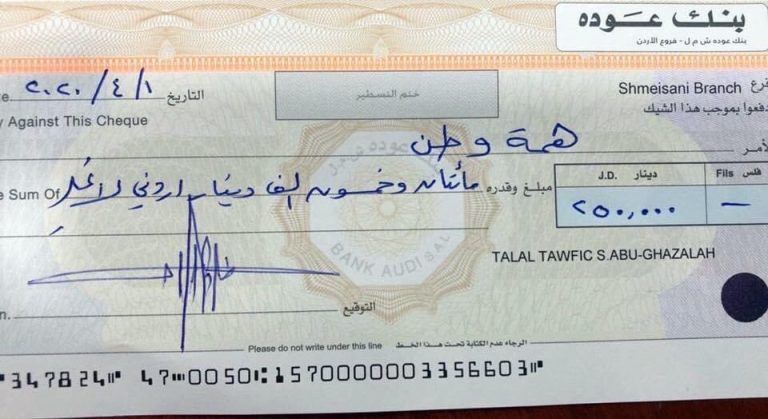 بنك عوده
بنك عوده ش م ل - فروع الأردن
٢٠٢٠/٤/١ التاريخ
ختم التسطير
Shmeisani Branch فرع
Against This Cheque
دفعوا بموجب هذا الشيك
همة وطن
Sum Of مأئتان وخمسون الف دينار اردني لا غير مبلغ وقدره
J.D. دينار Fils فلس
٢٥٠,٠٠٠ —
BANK AUDI S.A.L
TALAL TAWFIC S.ABU-GHAZALAH
التوقيع
Please do not write under this line الرجاء عدم الكتابة تحت هذا الخط
347824 47 0050 1570000003356603